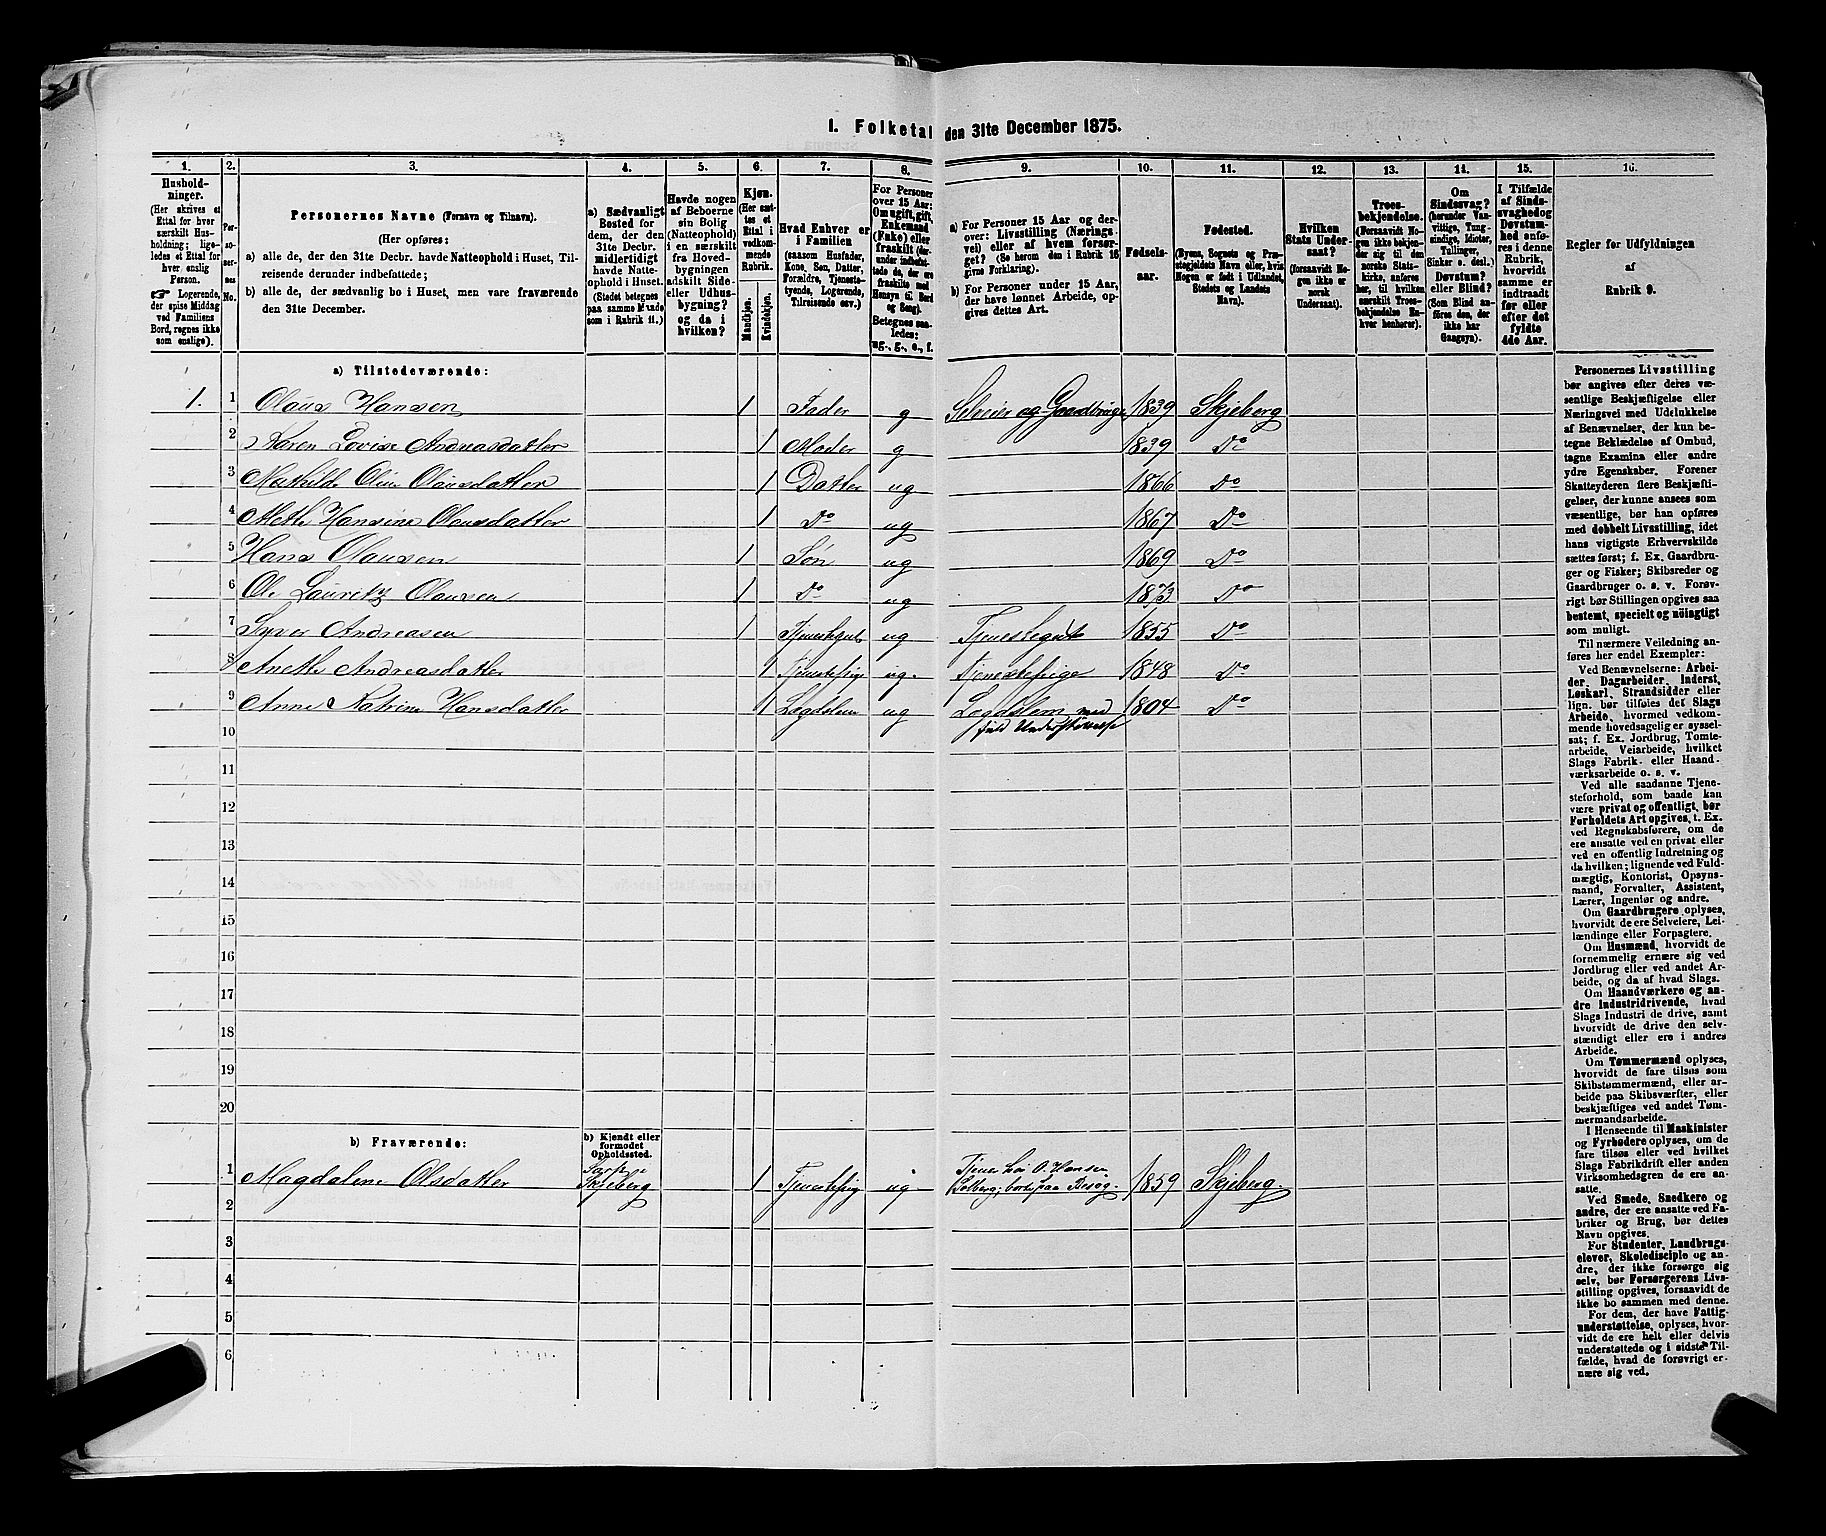 I. Folketal den 31te December 1875.
1. 2. 3. 4. 5. 6. 7. 8. 9. 10. 11. 12. 13. 14. 15. 16.
Husholdninger.
(Her skrives et Ettal for hver særskilt Husholdning; ligeledes et Ettal for hver enslig Person.
☞ Logerende, der spise Middag ved Familiens Bord, regnes ikke som enslige).
Personernes No.
Personernes Navne (Fornavn og Tilnavn).
(Her opføres:
a) alle de, der den 31te Decbr. havde Natteophold i Huset, Tilreisende derunder indbefattede;
b) alle de, der sædvanlig bo i Huset, men vare fraværende den 31te December.
a) Sædvanligt Bosted for dem, der den 31te Decbr. midlertidigt havde Natteophold i Huset.
(Stedet betegnes paa samme Maade som i Rubrik 11.)
Havde nogen af Beboerne sin Bolig (Natteophold) i en særskilt fra Hovedbygningen adskilt Side- eller Udhusbygning? og da i hvilken?
Kjøn.
(Her sættes et Ettal i vedkommende Rubrik.
Mandkjøn.
Kvindekjøn.
Hvad Enhver er i Familien
(saasom Husfader, Kone, Søn, Datter, Forældre, Tjenestetyende, Logerende, Tilreisende osv.)
For Personer over 15 Aar: Om ugift, gift, Enkemand (Enke) eller fraskilt (herunder indbefattede de, der ere fraskilte med Hensyn til Bord og Seng).
Betegnes saaledes: ug., g., e., f.
a) For Personer 15 Aar og derover: Livsstilling (Næringsvei) eller af hvem forsørget? (Se herom den i Rubrik 16 givne Forklaring).
b) For Personer under 15 Aar, der have lønnet Arbeide, opgives dettes Art.
Fødselsaar.
Fødested.
(Byens, Sognets og Præstegjeldets Navn eller, hvis Nogen er født i Udlandet, Stedets og Landets Navn).
Hvilken Stats Undersaat?
(forsaavidt Nogen ikke er norsk Undersaat).
Troesbekjendelse.
(Forsaavidt Nogen ikke bekjender sig til den norske Statskirke, anføres her, til hvilken særskilt Troesbekjendelse Enhver henhører).
Om Sindssvag? (herunder Vanvittige, Tungsindige, Idioter, Tullinger, Sinker o. desl.)
Døvstum? eller Blind?
(Som Blind anføres den, der ikke har Gangsyn).
I Tilfælde af Sindssvaghed og Døvstumhed anføres i denne Rubrik, hvorvidt samme er indtraadt før eller efter det fyldte 4de Aar.
Regler for Udfyldningen af Rubrik 9.
a) Tilstedeværende:
1. 1 Olaus Hansen 1 Fader g Selveier og Gaardbruger 1839 Skjeberg
2 Karen Lovise Andreasdatter 1 Moder g 1839 Do
3 Mathilde Oline Olausdatter 1 Datter ug 1866 Do
4 Methe Hansine Olausdatter 1 Do ug 1867 Do
5 Hans Olausen 1 Søn ug 1869 Do
6 Ole Lauritz Olausen 1 Do ug 1873 Do
7 Syver Andreasen 1 Tjenestegut ug Tjenestegut 1855 Do
8 Anethe Andreasdatter 1 Tjenestepige ug. Tjenestepige 1848 Do
9 Anne Katrine Hansdatter 1 Lægdslem ug Lægdslem med 1804 Do
fuld Understøttelse
10
11
12
13
14
15
16
17
18
19
20
b) Fraværende:
b) Kjendt eller formodet Opholdssted.
1 Magdalene Olsdatter Skjeberg 1 Tjenestepige ug Tjener hos O. Hansen
Solberg; borte paa Besøg. 1859 Skjeberg.
2
3
4
5
6
Personernes Livsstilling
bør angives efter deres væ-
sentlige Beskjæftigelse eller
Næringsvei med Udelukkelse
af Benævnelser, der kun be-
tegne Beklædelse af Ombud,
tagne Examina eller andre
ydre Egenskaber. Forener
Skatteyderen flere Beskjæfti-
gelser, der kunne ansees som
væsentlige, bør han opføres
med dobbelt Livsstilling, idet
hans vigtigste Erhvervskilde
sættes først; f. Ex. Gaardbru-
ger og Fisker; Skibsreder og
Gaardbruger o. s. v. Forøv-
rigt bør Stillingen opgives saa
bestemt, specielt og nöiagtigt
som muligt.
Til nærmere Veiledning an-
føres her endel Exempler:
Ved Benævnelserne: Arbei-
der, Dagarbeider, Inderst,
Løskarl, Strandsidder eller
lign. bør tilføies det Slags
Arbeide, hvormed vedkom-
mende hovedsagelig er syssel-
sat; f. Ex. Jordbrug, Tomte-
arbeide, Veiarbeide, hvilket
Slags Fabrik- eller Haand-
værksarbeide o. s. v.
Ved alle saadanne Tjene-
steforhold, som baade kan
være privat og offentligt, bør
Forholdets Art opgives, t. Ex.
ved Regnskabsførere, om de
ere ansatte ved en privat eller
ved en offentlig Indretning og
da hvilken; lignende ved Fuld-
mægtig, Kontorist, Opsyns-
mand, Forvalter, Assistent,
Lærer, Ingeniør og andre.
Om Gaardbrugere oplyses,
hvorvidt de ere Selveiere, Lei-
lændinge eller Forpagtere.
Om Husmænd, hvorvidt de
fornemmelig ernære sig ved
Jordbrug eller ved andet Ar-
beide, og da af hvad Slags.
Om Haandværkere og an-
dre Industridrivende, hvad
Slags Industri de drive, samt
hvorvidt de drive den selv-
stændigt eller ere i andres
Arbeide.
Om Tømmermænd oplyses,
hvorvidt de fare tilsøs som
Skibstømmermænd, eller ar-
beide paa Skibsværfter, eller
beskjæftiges ved andet Tøm-
mermandsarbeide.
I Henseende til Maskinister
og Fyrbødere oplyses, om de
fare tilsøs eller ved hvilket
Slags Fabrikdrift eller anden
Virksomhedsgren de ere an-
satte.
Ved Smede, Snedkere og
andre, der ere ansatte ved Fa-
briker og Brug, bør dettes
Navn opgives.
For Studenter, Landbrugs-
elever, Skoledisciple og an-
dre, der ikke forsørge sig
selv, bør Forsørgerens Livs-
stilling opgives, forsaavidt de
ikke bo sammen med denne.
For dem, der have Fattig-
understøttelse, oplyses, hvor-
vidt de ere helt eller delvis
understøttede og i sidste Til-
fælde, hvad de forøvrigt er-
nære sig ved.